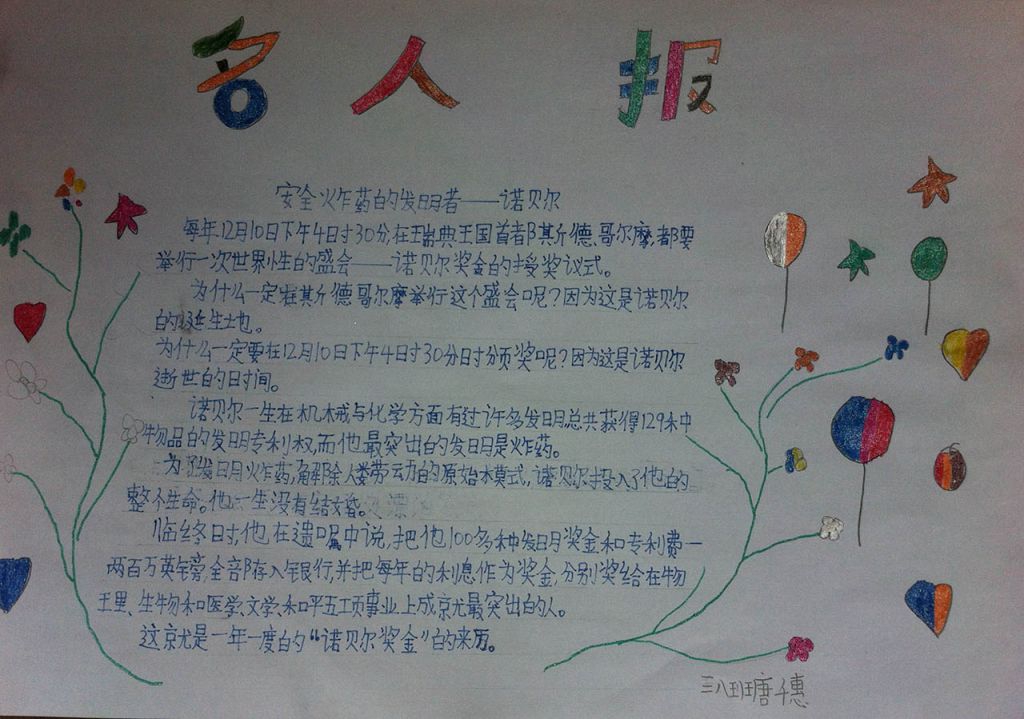 名人报
安全炸药的发明者——诺贝尔
每年12月10日下午4时30分,在瑞典王国首都斯德哥尔摩,都要
举行一次世界性的盛会——诺贝尔奖金的授奖议式。
为什么一定在其斤德哥尔摩举行这个盛会呢?因为这是诺贝尔
的诞生地。
为什么一定要在12月10日下午4时30分时分颁奖呢?因为这是诺贝尔
逝世的时间。
诺贝尔一生在机械与化学方面有过许多发明总共获得129种
物品的发明专利权,而他最突出的发明是炸药。
为了发明炸药,解除人类劳动力的原始木模式,诺贝尔投入了他的
整个生命。他一生没有结婚。
临终时,他在遗嘱中说,把他100多种发明奖金和专利费一
两百万英镑,全部存入银行,并把每年的利息作为奖金,分别奖给在物
王里、生物和医学、文学和平五项事业上成就最突出的人。
这就是一年一度的“诺贝尔奖金”的来历。
三八班 穗